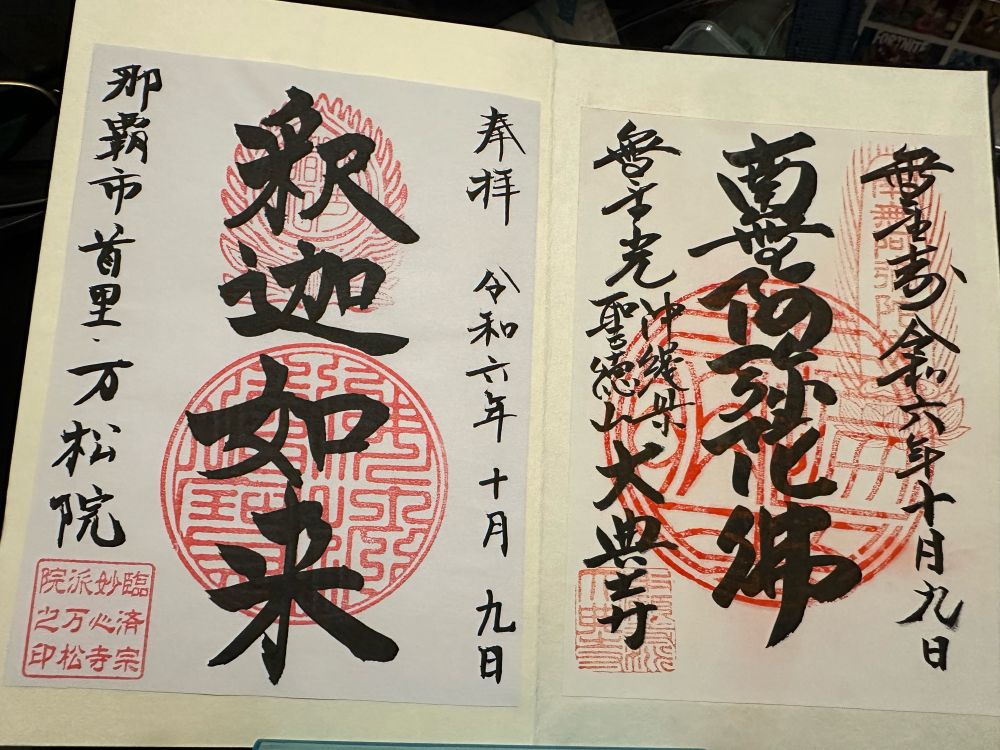 FORTNITE
無量寿 令和六年十月九日
南無阿弥陀佛
無量光
沖縄県
聖徳山 大典寺
奉拝 令和六年 十月 九日
釈迦如来
那覇市首里・万松院
臨済宗
妙心寺
派万松
院之印